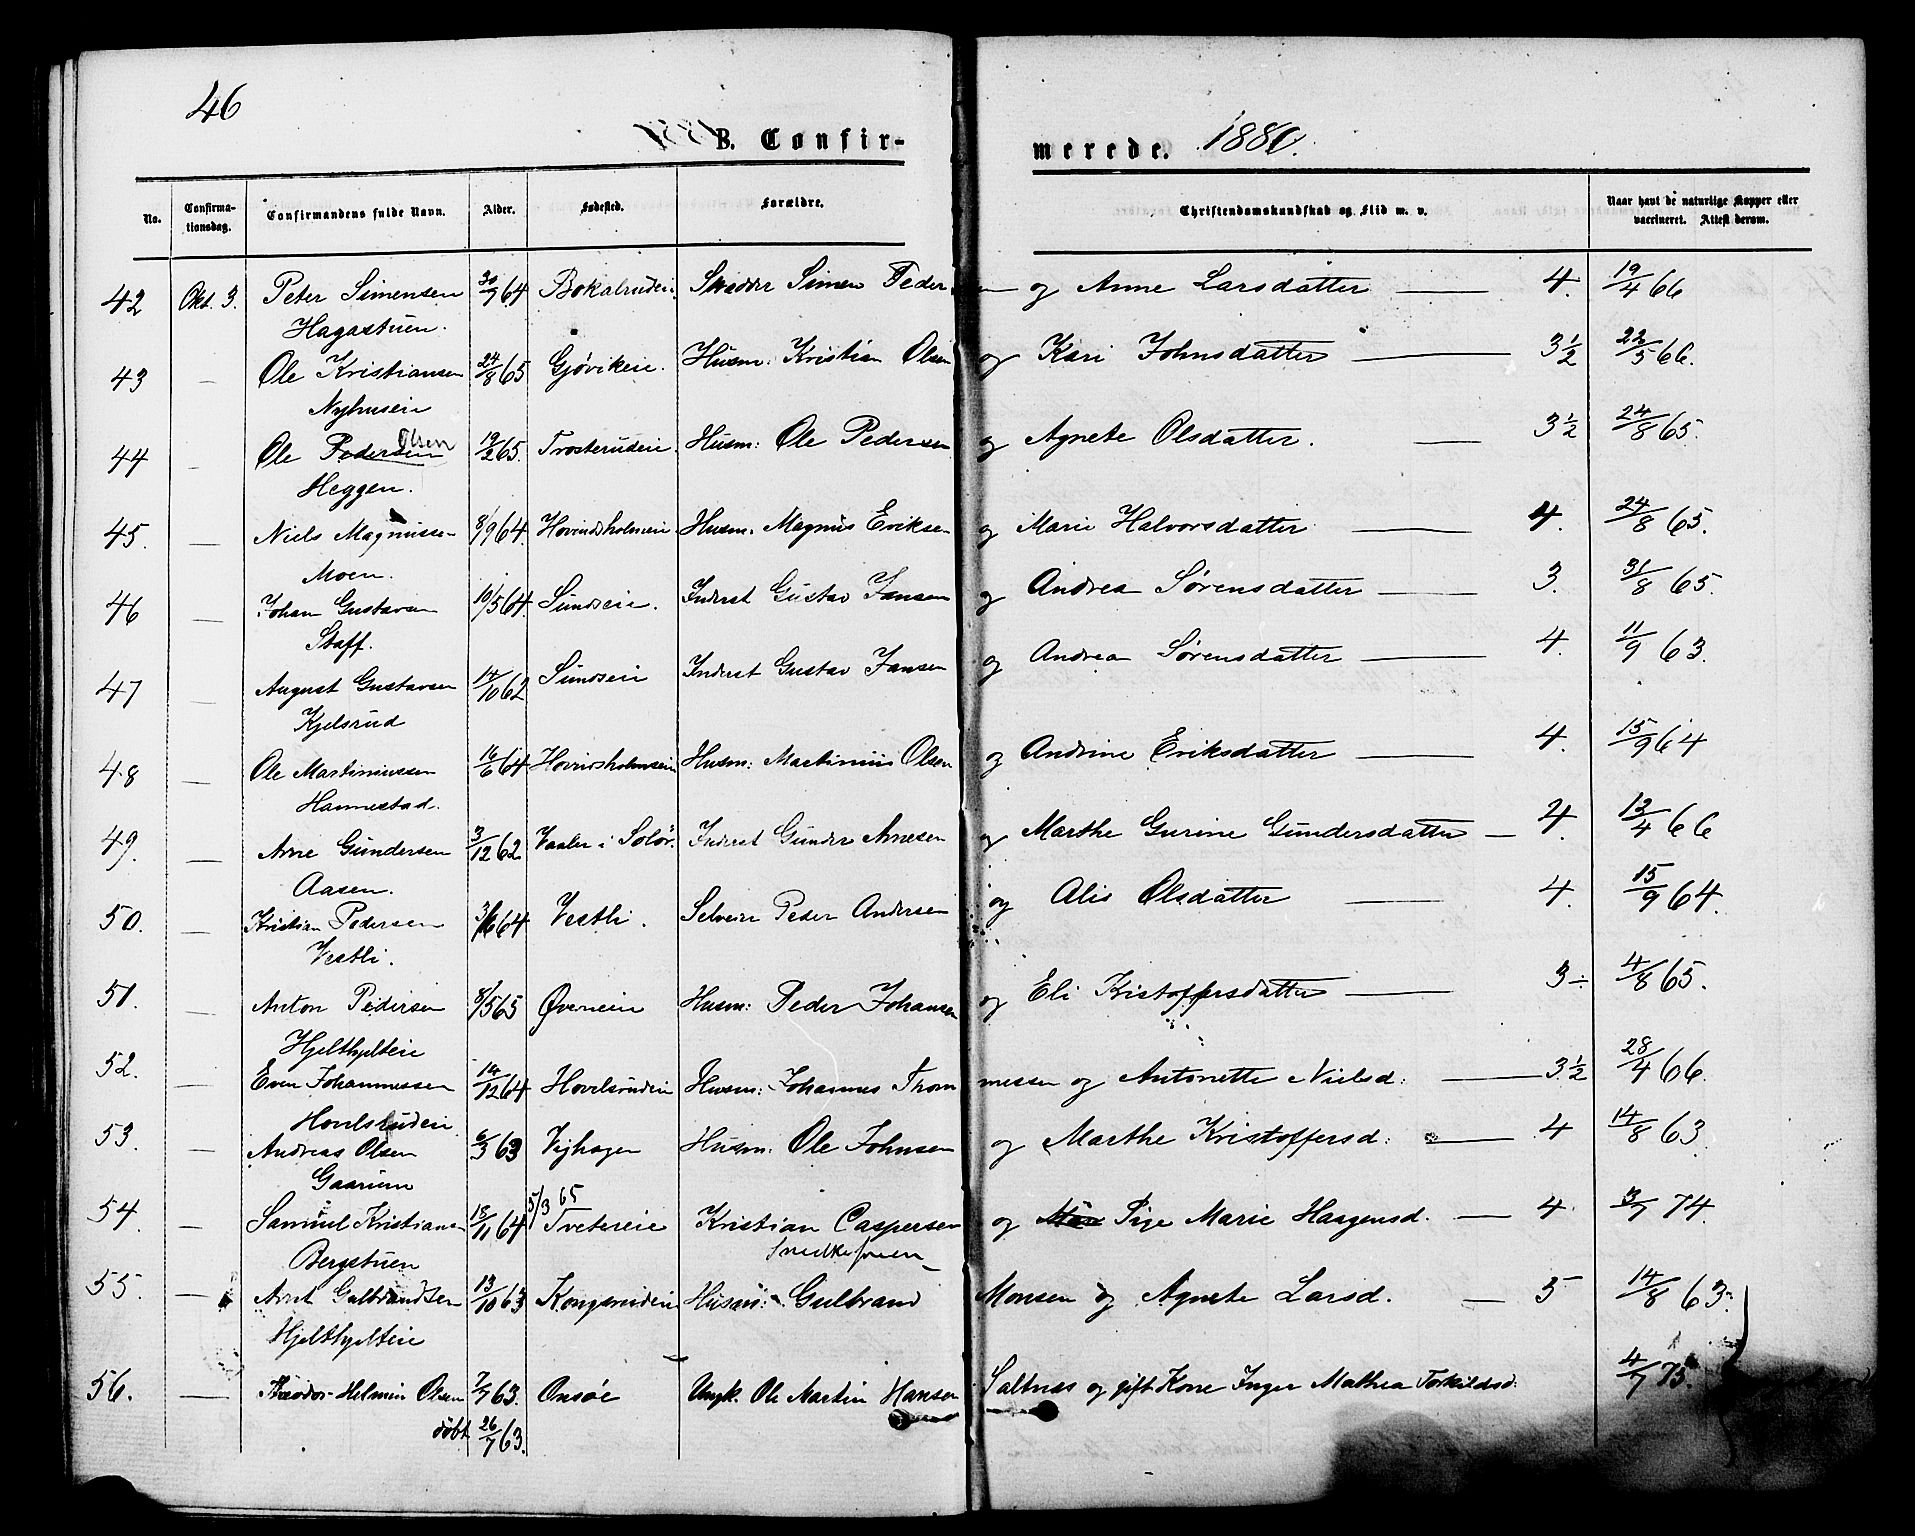 46
B. Confir-
merede. 1880.
No.
Confirma-
tionsdag.
Confirmandens fulde Navn.
Alder.
Fødested.
Forældre.
Christendomskundskab og Flid m. v.
Naar havt de naturlige Kopper eller
vaccineret. Attest derom.
42 Okt. 3. Peter Simensen 30/7 64 Bokalrudeie. Skrædder Simen Peder og Anne Larsdatter 4. 19/4 66
Hagastuen.
43 — Ole Kristiansen 24/8 65 Gjøvikeie. Husm: Kristian Olsen og Kari Johnsdatter 3 1/2 22/5 66.
Nyhuseie
Olsen
44 - Ole Pedersen 19/2 65. Trosterudeie. Husm: Ole Pedersen og Agnete Olsdatter. 3 1/2 24/8 65.
Heggen.
45. — Niels Magnussen 8/9 64. Hovindsholmeie Husm. Magnus Eriksen og Marie Halvorsdatter 4. 24/8 65.
Moen.
46 — Johan Gustavsen 10/5 64. Sundseie. Inderst Gustav Jansen og Andrea Sørensdatter 3. 31/8 65.
Staff.
47 — August Gustavsen 14/10 62 Sundseie Inderst Gustav Jansen og Andrea Sørensdatter 4. 11/9 63.
Kjelsrud
48 — Ole Martiniussen 16/6 64 Hovindsholmseie Husm: Martinius Olsen og Andrine Eriksdatter 4. 15/9 64
Hannestad.
49. — Arne Gundersen 3/12 62 Vaaler i Solør. Inderst Gunder Arnesen og Marthe Gurine Gundersdatter 4. 12/4 66
Aasen.
50. — Kristian Pedersen 3/6 64 Vestli. Selveier Peder Andersen og Alis Olsdatter 4. 15/9 64.
Vestli.
51. — Anton Pedersen 8/5 65 Øverneie Husm: Peder Johansen og Eli Kristoffersdatter 3÷ 4/8 65.
Hjelthjelteie
52. — Even Johannessen 14/12 64 Hovelsrudeie Husm: Johannes Thom messen og Antonette Nielsd: 3 1/2 28/4 66.
Hovelsrudeie
53. — Andreas Olsen 6/3 63 Vejhagen Husm: Ole Johnsen og Marthe Kristoffersd: 4 14/8 63.
Gaarum
5/3 65
54. — Samuel Kristiansen 18/11 64 Tvetereie Kristian Caspersen og Pige Marie Haagensd. 4. 3/7 74.
Bergstuen
55. — Arnt Gulbrandsen 13/10 63 Kongsrudeie Husm: Gulbrand Monsen og Agnete Larsd. 5 14/8 63.
Hjelthjelteie
56. — Theodor Helmin Olsen 2/7 63. Onsøe Ungk. Ole Martin Hansen Saltnæs og gift Kone Inger Mathea Torkildsd: 4/7 75.
døbt 26/7 63.